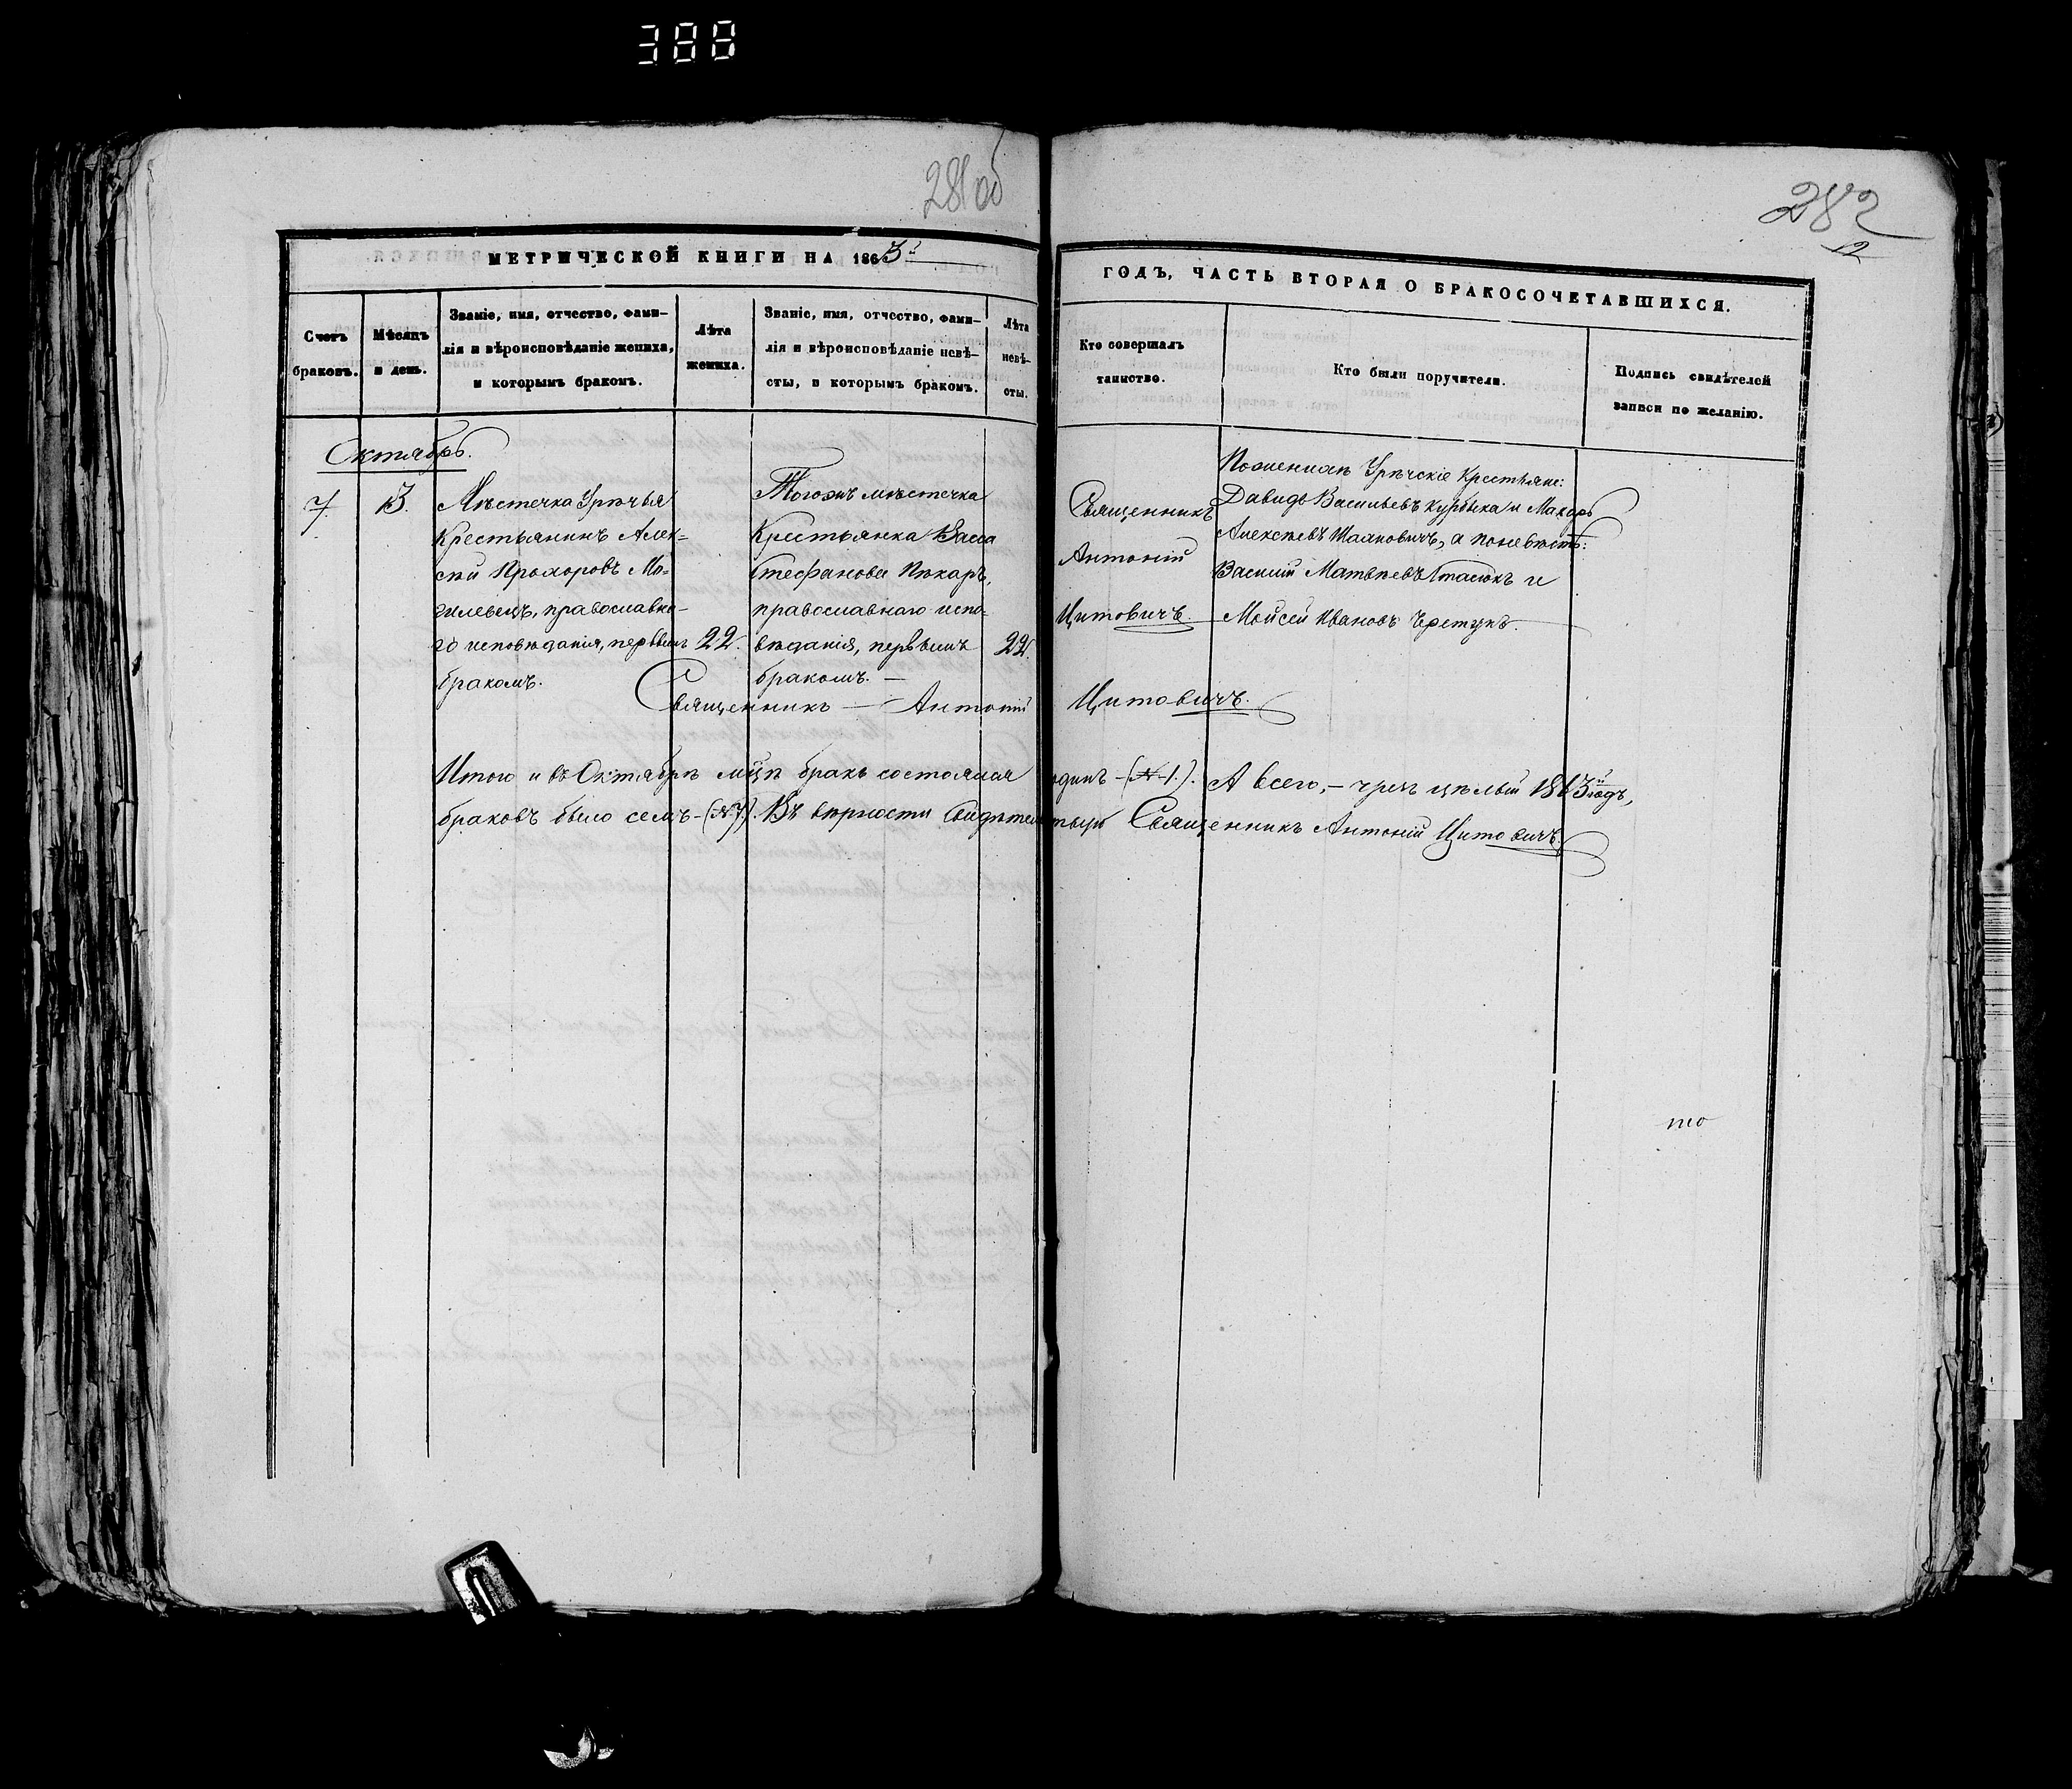 388
281 об
282
12
МЕТРИЧЕСКОЙ КНИГИ НА 1863й
ГОДЪ, ЧАСТЬ ВТОРАЯ О БРАКОСОЧЕТАВШИХСЯ.
Счетъ
браковъ.
Мѣсяцъ
и день.
Званіе, имя, отчество, фами-
лія и вѣроисповѣданіе жениха,
и которымъ бракомъ.
Лѣта
жениха.
Званіе, имя, отчество, фами-
лія и вѣроисповѣданіе невѣ-
сты, и которымъ бракомъ.
Лѣта
невѣ-
сты.
Кто совершалъ
таинство.
Кто были поручители.
Подпись свидѣтелей
записи по желанію.
Октябрь.
7.
13.
Мѣстечка Урѣчья
Крестьянинъ Алек-
сѣй Прохоровъ Мо-
гилевецъ, православна-
го исповѣданія, первымъ
бракомъ.
22.
Тогожъ мѣстечка
Крестьянка Васса
Стефанова Пекарь,
православнаго испо-
вѣданія, первымъ
бракомъ. —
22.
Священникъ
Антоній
Цитовичъ
По женихѣ Урѣчскіе Крестьяне:
Давидъ Васильевъ Курбыка и Макаръ
Алексѣевъ Шаяновичъ, а по невѣстѣ:
Василій Матвѣевъ Стасюкъ и
Мойсей Ивановъ Чретунъ.
Священникъ — Антоній Цитовичъ.
Итого и въ Октябрѣ мцѣ бракъ состоялся одинъ — (№ 1.). А всего, — чрезъ цѣлый 1863й годъ,
браковъ было семъ — (№ 7). Въ вѣрности свидѣтельствую Священникъ Антоній Цитовичъ.
то